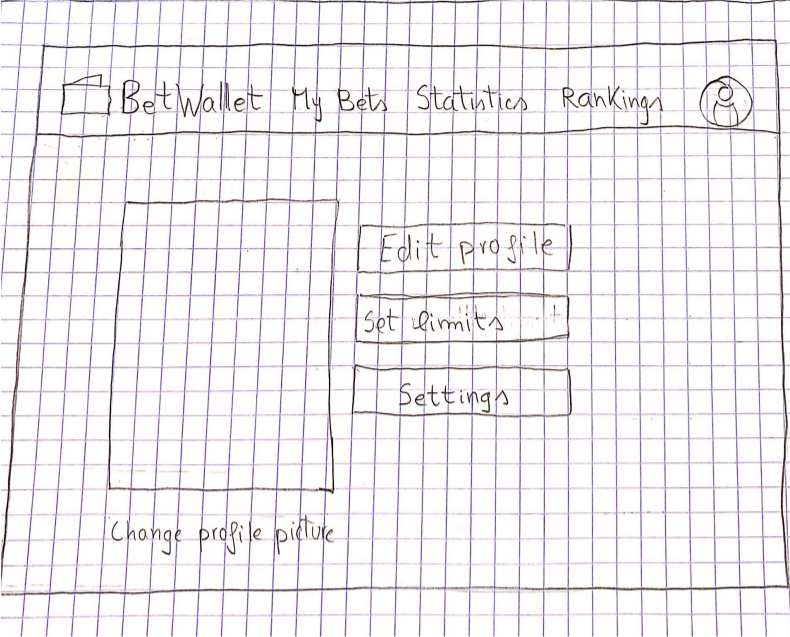 BetWallet My Bets Statistics Rankings
Edit profile
Set limits
Settings
Change profile picture